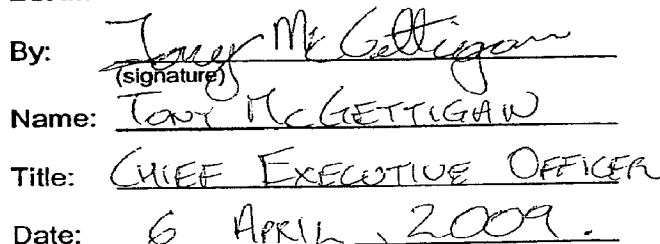 By: Tony McGettigan
(signature)
Name: TONY MCGETTIGAN
Title: CHIEF EXECUTIVE OFFICER
Date: 6 APRIL, 2009.